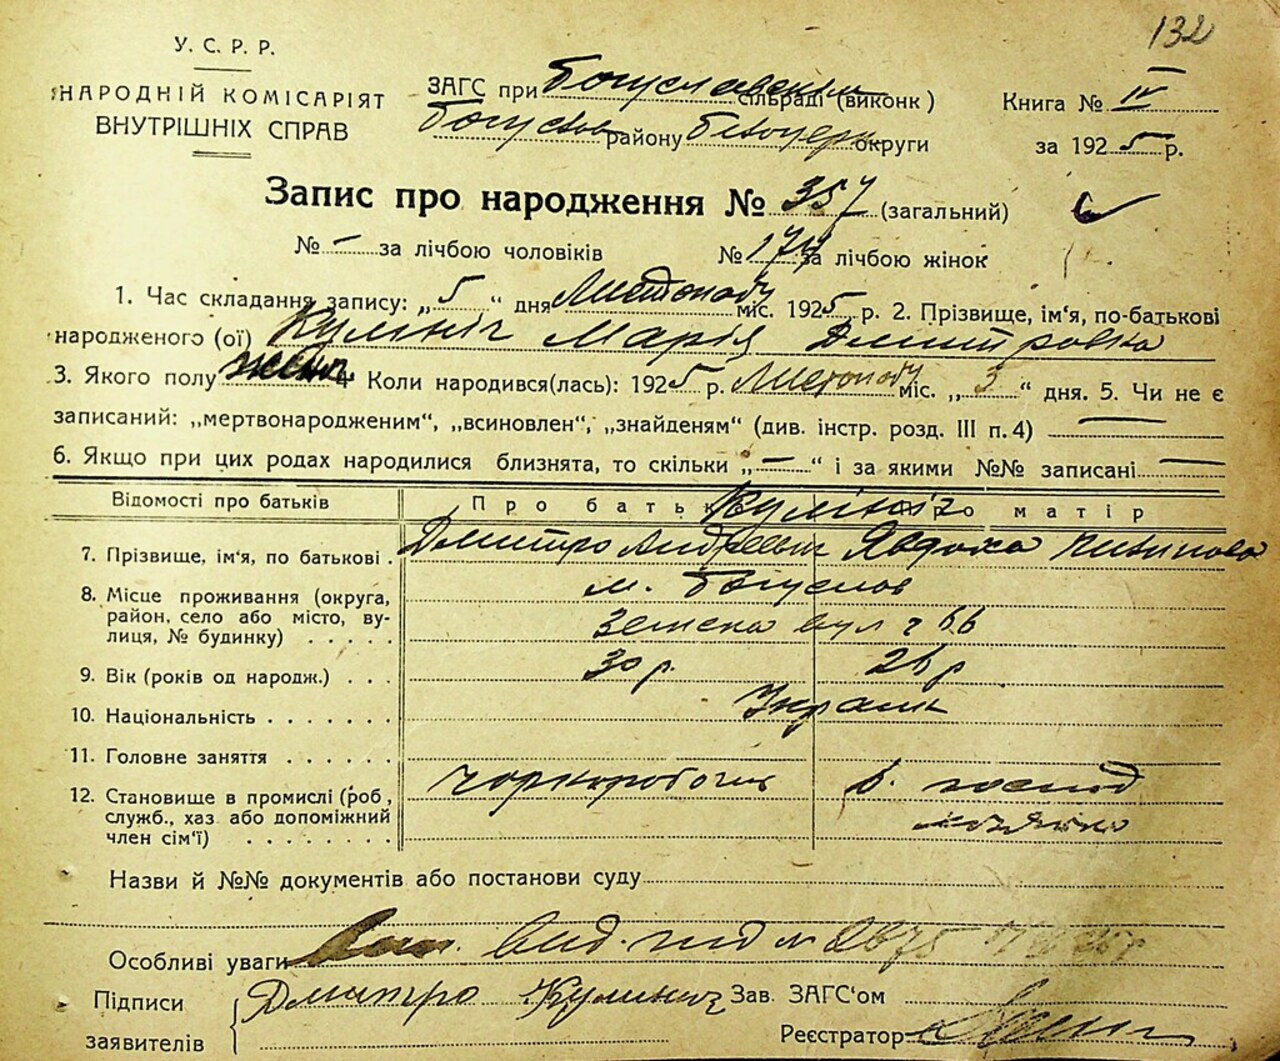 132
У. С. Р. Р.
НАРОДНІЙ КОМІСАРІЯТ
ВНУТРІШНІХ СПРАВ
ЗАГС при Богуславськім сільраді (виконк)
району округи
Книга № IV
за 1925 р.
Запис про народження № 357 (загальний)
№ — за лічбою чоловіків № 174 за лічбою жінок
1. Час складання запису: „5“ дня Листопаду міс. 1925 р. 2. Прізвище, ім'я, по-батькові
народженого (ої) Кулініч Марія Дмитровна
3. Якого полу жіноч. 4. Коли народився(лась): 1925 р. Листопаду міс. „3“ дня. 5. Чи не є
записаний: „мертвонародженим“, „всиновлен“, „знайденям“ (див. інстр. розд. III п. 4) —
6. Якщо при цих родах народилися близнята, то скільки „—“ і за якими №№ записані —
Відомості про батьків Про батька Про матір
Кулініч
7. Прізвище, ім'я, по батькові . Дмитро Андреевич Явдоха
8. Місце проживання (округа,
район, село або місто, ву-
лиця, № будинку) . . . . .
м. Богуслав
вул ч 66
9. Вік (років од народж.) . . . 30 р. 26 р
10. Національність . . . . . . . Україн
11. Головне заняття . . . . . .
12. Становище в промислі (роб.,
служб., хаз або допоміжний
член сім'ї) . . . . . . . .
чорноробочих в. господ
Назви й №№ документів або постанови суду
Особливі уваги вид. під № 2675
Підписи
заявителів
Дмитро Кулинич Зав. ЗАГС'ом
Реєстратор